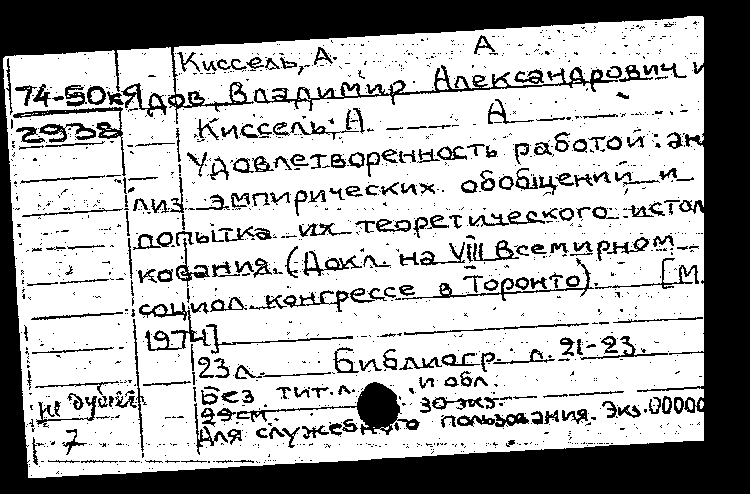 Киссель, А. А
74-50к Ядов, Владимир Александрович и
2938 Киссель, А. А
Удовлетворенность работой: ана
лиз эмпирических обобщений и
попытка их теоретического истол
кования. (Докл. на VIII Всемирном
социол. конгрессе в Торонто). [М.
1974]
23л. Библиогр. л. 21-23.
Без тит. л. и обл.
29см. 30 экз.
Для служебного пользования. Экз. 00000
не дублет
7